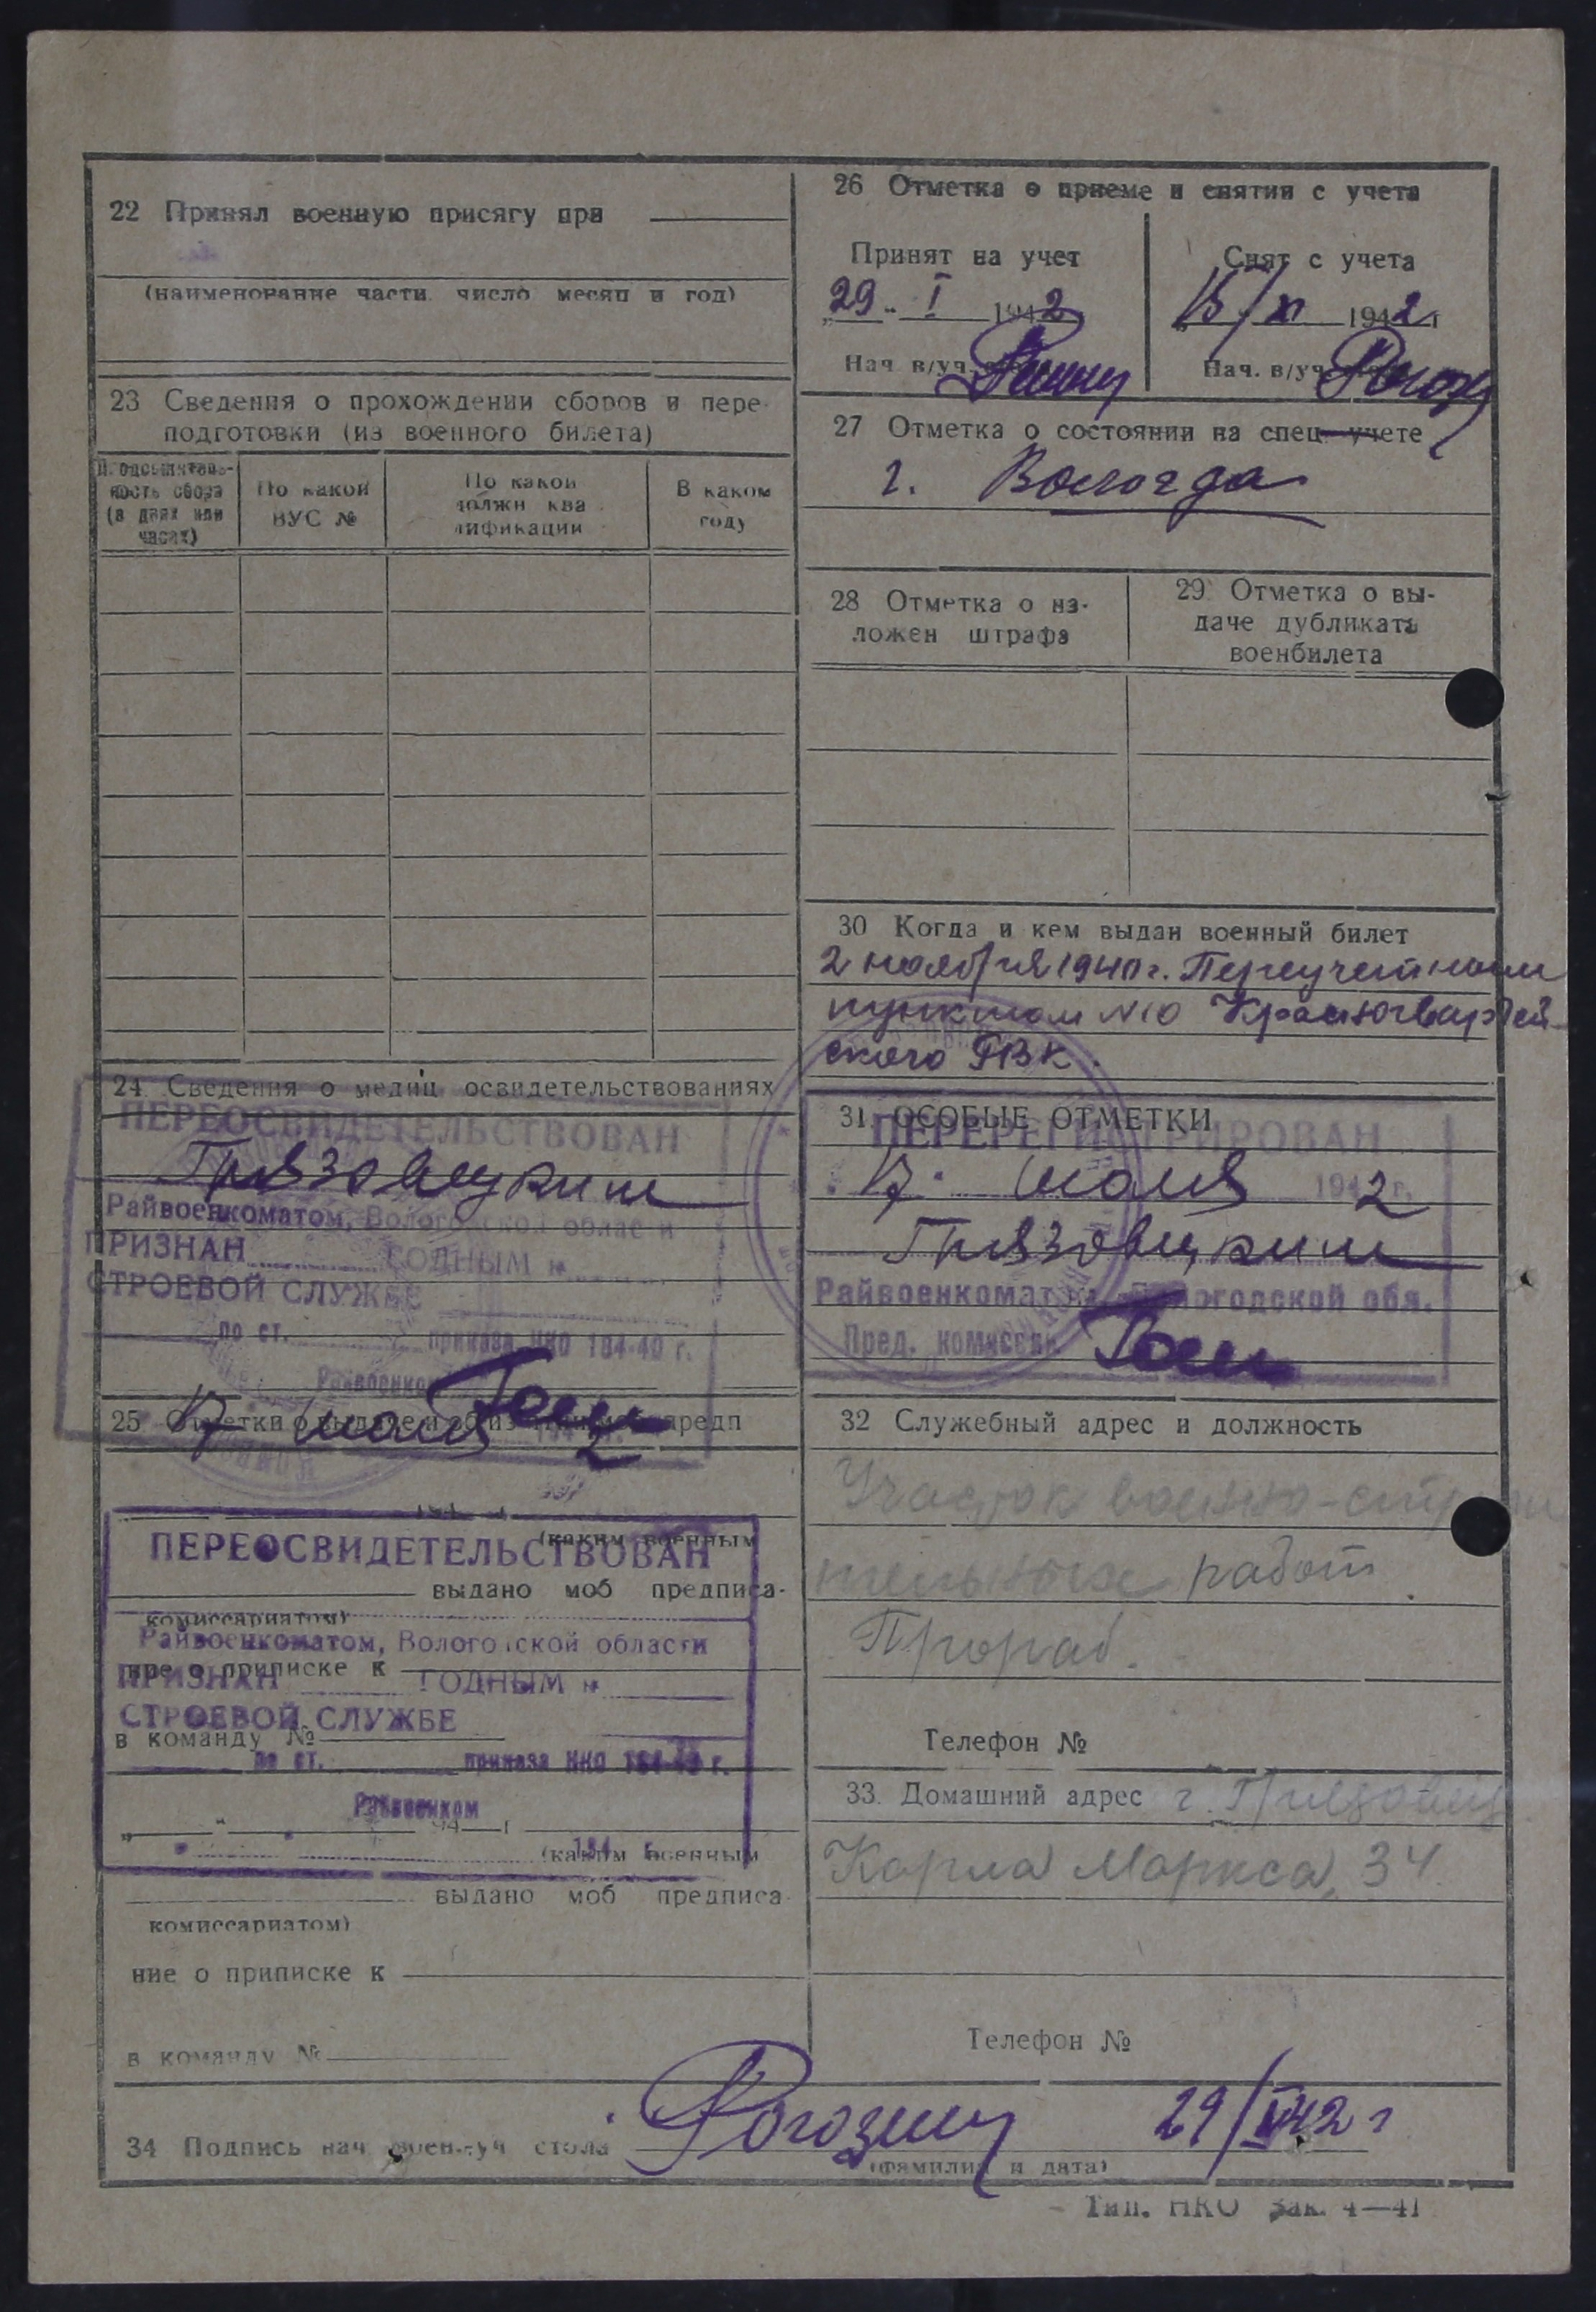 22 Принял военную присягу при
(наименование части, число месяц и год)
23 Сведения о прохождении сборов и пере-
подготовки (из военного билета)
Продолжитель-
ность сбора
(в днях или
часах)
По какой
ВУС №
По какой
должн ква
лификации
В каком
году
24 Сведения о медиц освидетельствованиях
ПЕРЕОСВИДЕТЕЛЬСТВОВАН
Грязовецким
Райвоенкоматом, Вологодской области
ПРИЗНАН ГОДНЫМ к
СТРОЕВОЙ СЛУЖБЕ
по ст. приказа НКО 184-40 г.
Райвоенком
25 Отметки о выдаче и об из предп
17 июля 2
194 г
(каким военным
ПЕРЕОСВИДЕТЕЛЬСТВОВАН
выдано моб предписа-
комиссариатом)
Райвоенкоматом, Вологодской области
ние о приписке к
ПРИЗНАН ГОДНЫМ к
СТРОЕВОЙ СЛУЖБЕ
в команду №
по ст. приказа НКО 184-40 г.
Райвоенком
194 г
194 г.
(каким военным
выдано моб предписа-
комиссариатом)
ние о приписке к
в команду №
26 Отметка о приеме и снятии с учета
Принят на учет
29 - I 1942
Нач в/уч.
Снят с учета
15/XI 1942 г
Нач. в/уч
27 Отметка о состоянии на спец. учете
г. Вологда
28 Отметка о на-
ложен штрафа
29 Отметка о вы-
даче дубликата
военбилета
30 Когда и кем выдан военный билет
2 ноября 1940 г. Переучетным
пунктом №10 Красногвардей-
ского РВК.
31. ОСОБЫЕ ОТМЕТКИ
ПЕРЕРЕГИСТРИРОВАН
17 июля 1942 г.
Грязовецким
Райвоенкомат Вологодской обл.
Пред. комиссии
32 Служебный адрес и должность
Участок военно-строи
тельных работ
Прораб.
Телефон №
33. Домашний адрес г. Грязовец
Карла Маркса, 34
Телефон №
34 Подпись нач воен-уч стола Рогозин 29/ 42 г
(фамилия и дата)
Тип. НКО Зак. 4—41